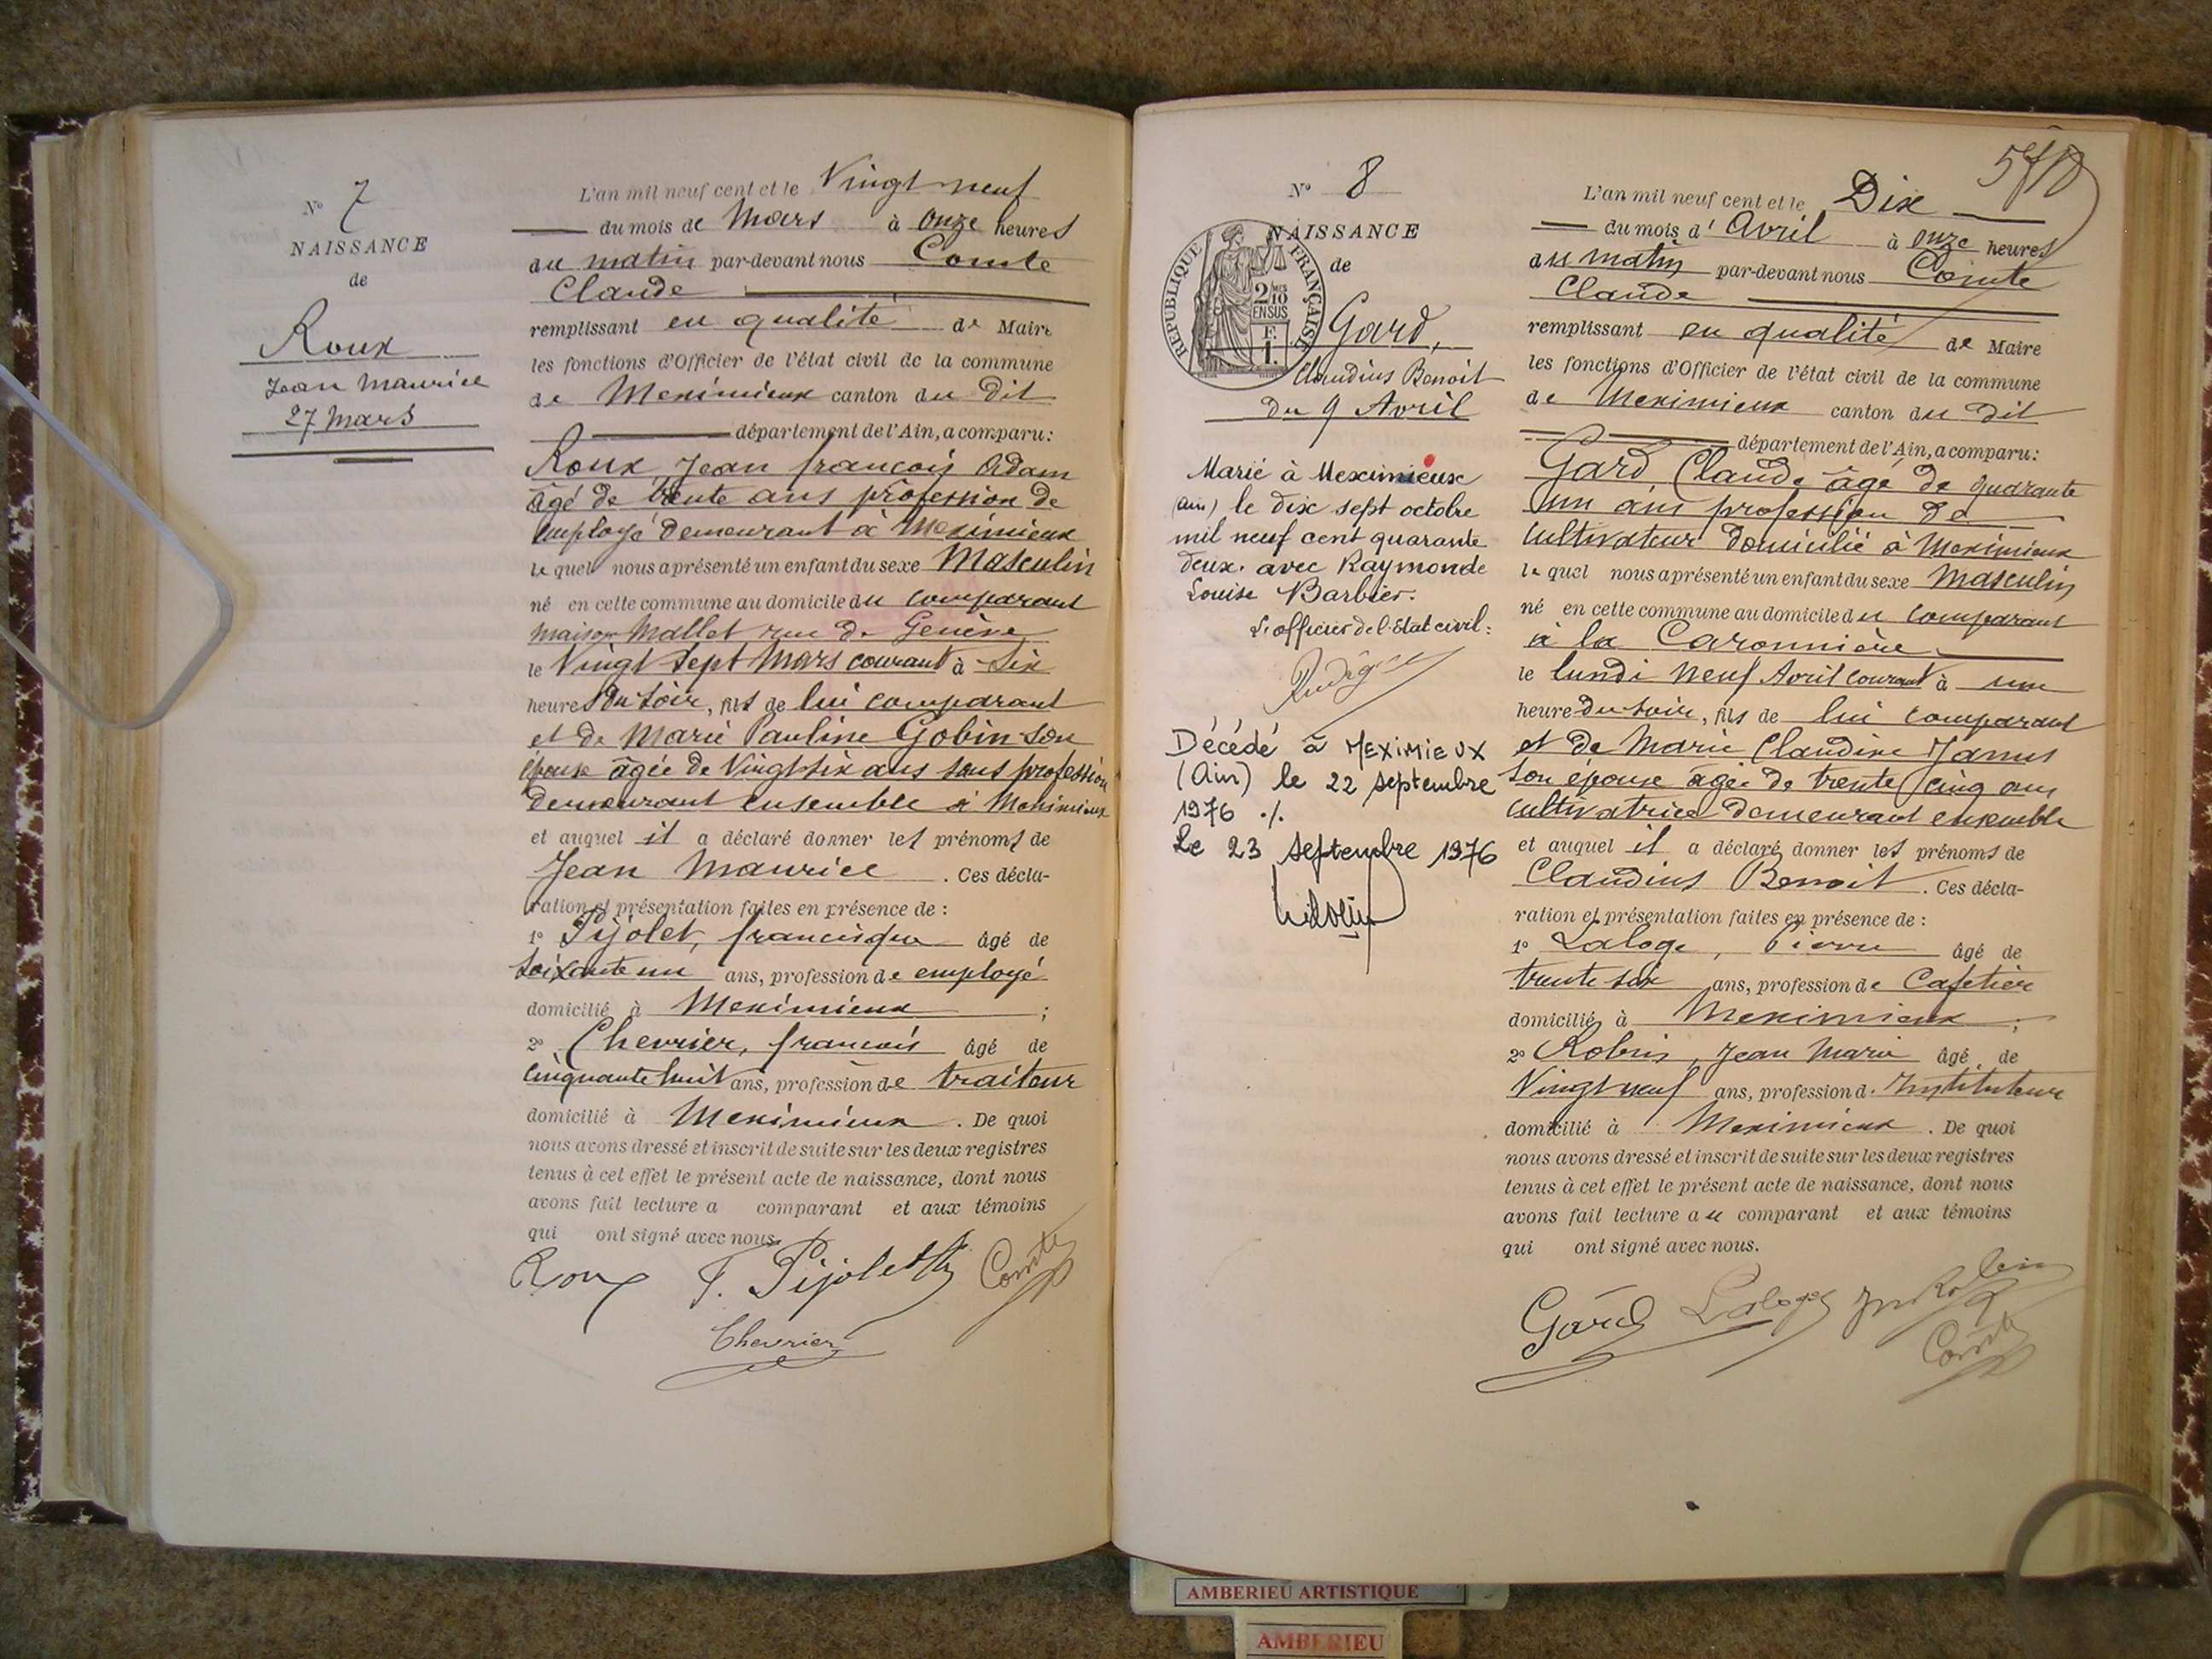 N° 7
NAISSANCE
de
Roux
Jean Maurice
27 Mars
L'an mil neuf cent et le Vingt neuf
du mois de Mars à onze heures
du matin par-devant nous Comte
Claude
remplissant en qualité de Maire
les fonctions d'Officier de l'état civil de la commune
de Meximieux canton du dit
département de l'Ain, a comparu:
Roux Jean françois Adam
âgé de trente ans profession de
employé demeurant à Meximieux
lequel nous a présenté un enfant du sexe Masculin
né en cette commune au domicile du comparant
maison Mallet rue de Genève
le Vingt sept Mars courant à six
heures du soir, fils de lui comparant
et de Marie Pauline Gobin son
épouse âgée de Vingt six ans sans profession
demeurant ensemble à Meximieux
et auquel il a déclaré donner les prénoms de
Jean Maurice. Ces décla-
ration et présentation faites en présence de :
1° Pijolet, francisque âgé de
soixante un ans, profession de employé
domicilié à Meximieux ;
2° Chevrier, françois âgé de
cinquante huit ans, profession de traiteur
domicilié à Meximieux. De quoi
nous avons dressé et inscrit de suite sur les deux registres
tenus à cet effet le présent acte de naissance, dont nous
avons fait lecture a comparant et aux témoins
qui ont signé avec nous.
Roux F. Pijolet Comte
Chevrier
N° 8
NAISSANCE
de
RÉPUBLIQUE FRANÇAISE
2/10 EN SUS
F. 1.
Gard,
Claudius Benoit
du 9 Avril
Marié à Meximieux
(Ain) le dix sept octobre
mil neuf cent quarante
deux. avec Raymonde
Louise Barbier.
L'officier de l'Etat civil :
Décédé à MEXIMIEUX
(Ain) le 22 septembre
1976 ./.
Le 23 septembre 1976
L'an mil neuf cent et le Dix
du mois d'Avril à onze heures
du matin par-devant nous Comte
Claude
remplissant en qualité de Maire
les fonctions d'Officier de l'état civil de la commune
de Meximieux canton du dit
département de l'Ain, a comparu:
Gard, Claude âgé de quarante
un ans profession de
cultivateur domicilié à Meximieux
lequel nous a présenté un enfant du sexe Masculin
né en cette commune au domicile du comparant
à la Caronnière
le lundi neuf Avril courant à une
heure du soir, fils de lui comparant
et de Marie Claudine
son épouse âgée de trente cinq ans
cultivatrice demeurant ensemble
et auquel il a déclaré donner les prénoms de
Claudius Benoit. Ces décla-
ration et présentation faites en présence de :
1° Laloge, Pierre âgé de
trente six ans, profession de Cafetier
domicilié à Meximieux ;
2° Robin, Jean Marie âgé de
Vingt neuf ans, profession d. Instituteur
domicilié à Meximieux. De quoi
nous avons dressé et inscrit de suite sur les deux registres
tenus à cet effet le présent acte de naissance, dont nous
avons fait lecture au comparant et aux témoins
qui ont signé avec nous.
Gard Laloge Robin
Comte
AMBERIEU ARTISTIQUE
AMBERIEU